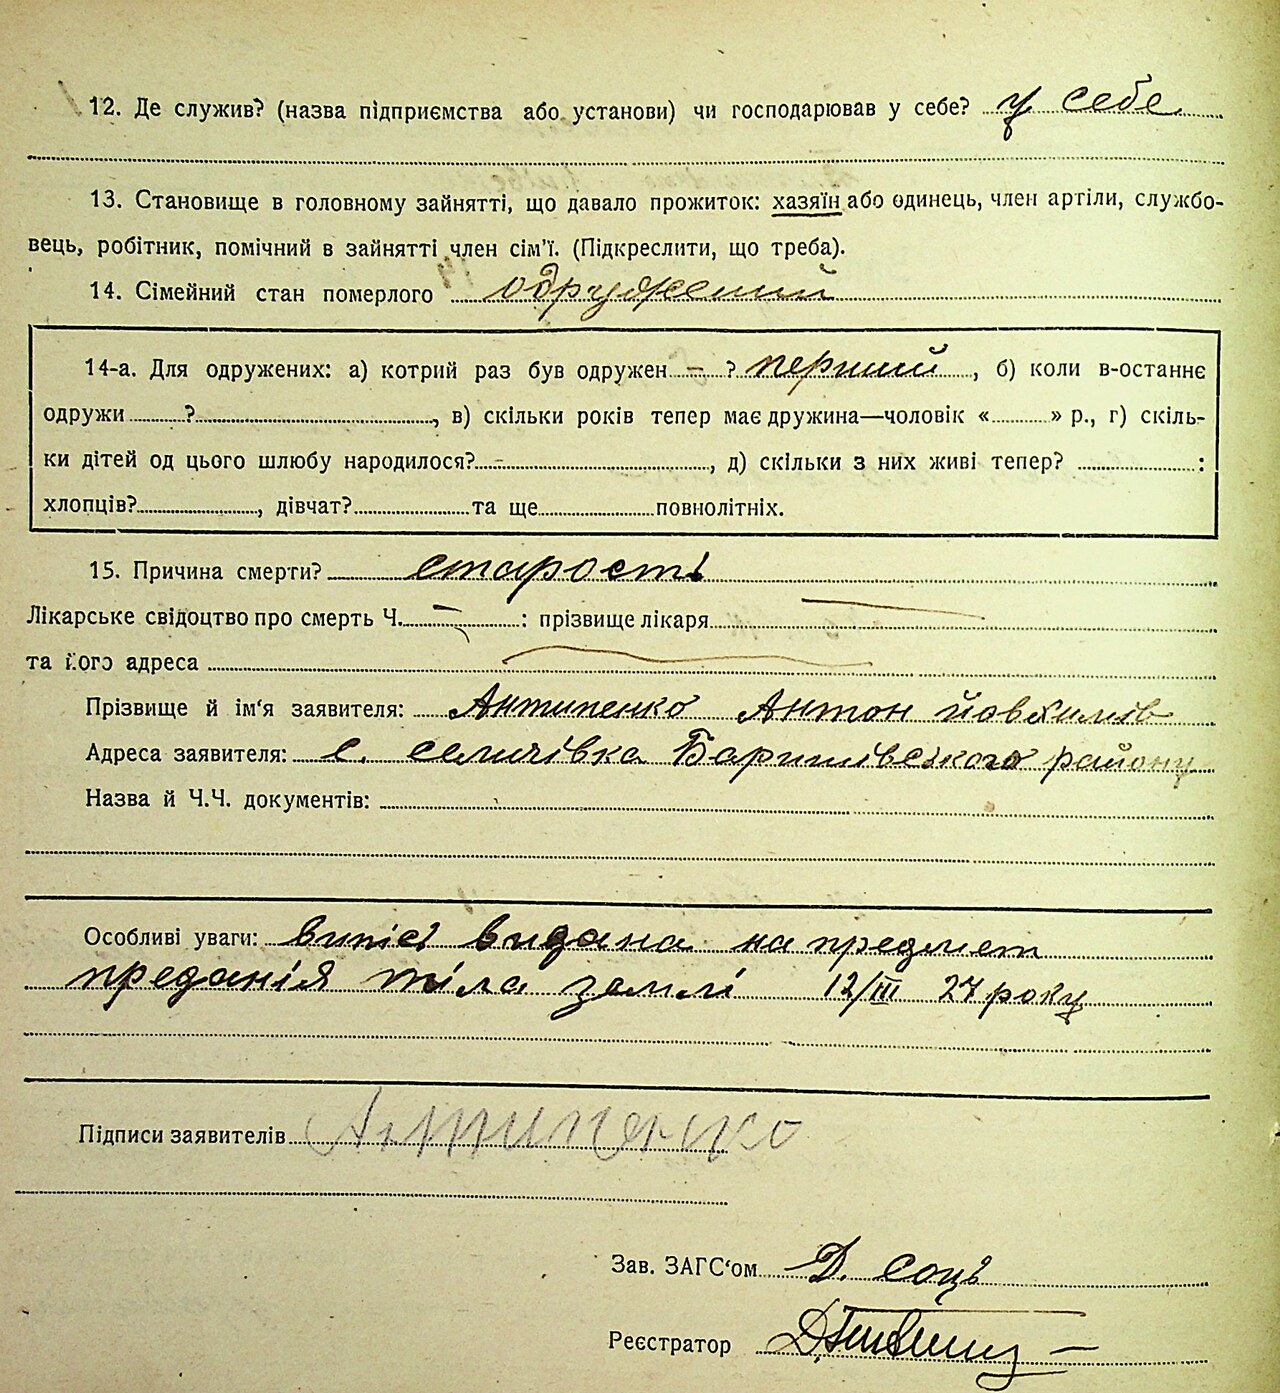 12. Де служив? (назва підприємства або установи) чи господарював у себе? у себе
13. Становище в головному зайнятті, що давало прожиток: хазяїн або одинець, член артіли, службо-
вець, робітник, помічний в зайнятті член сім'ї. (Підкреслити, що треба).
14. Сімейний стан померлого одружений
14-а. Для одружених: а) котрий раз був одружен – ? перший, б) коли в-останнє
одружи ?, в) скільки років тепер має дружина—чоловік « » р., г) скіль-
ки дітей од цього шлюбу народилося? -, д) скільки з них живі тепер? :
хлопців?, дівчат? та ще повнолітніх.
15. Причина смерти? старость
Лікарське свідоцтво про смерть Ч. — : прізвище лікаря —
та його адреса
Прізвище й ім'я заявителя: Антипенко Антон Йовхимів
Адреса заявителя: с. селичівка Баришівського району
Назва й Ч.Ч. документів:
Особливі уваги: випісь видана на предмет
преданія тіла землі 12/III 27 року
Підписи заявителів Антипенко
Зав. ЗАГС'ом Д.
Реєстратор